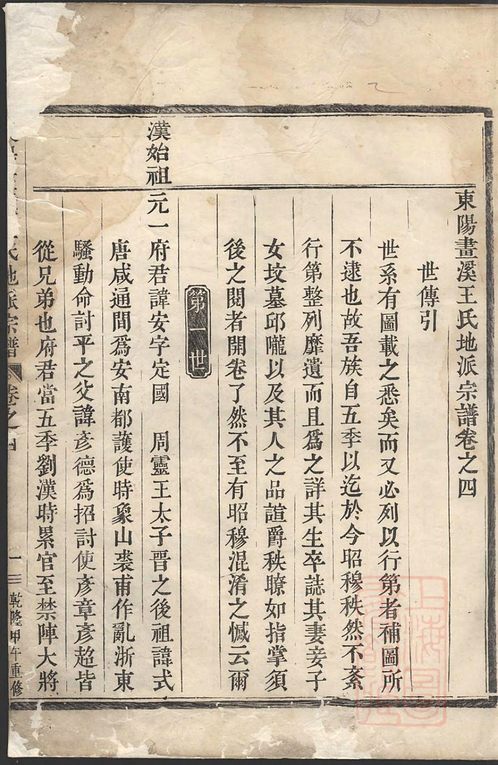 東陽畫溪王氏地派宗譜卷之四
世傳引
世系有圖載之悉矣而又必列以行第者補圖所
不逮也故吾族自五季以迄於今昭穆秩然不紊
行第整列靡遺而且爲之詳其生卒誌其妻妾子
女坟墓邱隴以及其人之品諠爵秩瞭如指掌須
後之閱者開卷了然不至有昭穆混淆之憾云爾
第一世
漢始祖元一府君諱安字定國 周靈王太子晉之後祖諱式
唐咸通間爲安南都護使時象山裘甫作亂浙東
騷動命討平之父諱彥德爲招討使彥章彥超皆
從兄弟也府君當五季劉漢時累官至禁陣大將
氏地派宗譜 卷之四 一 乾隆甲午重修